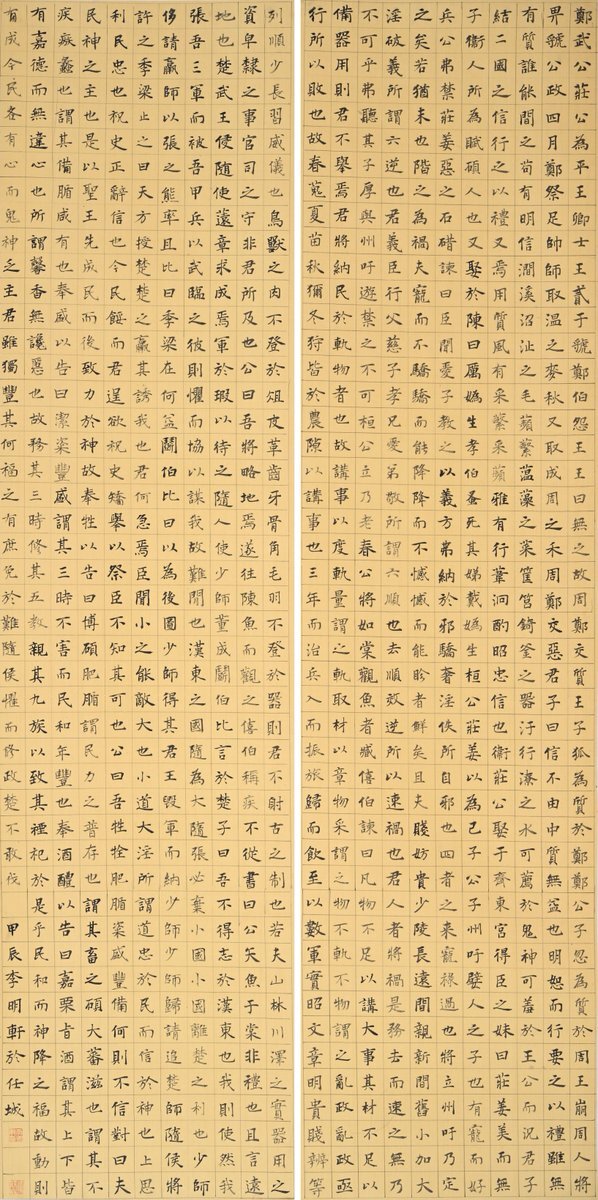 鄭武公莊公為平王卿士王貳于虢鄭伯怨王王曰無之故周鄭交質王子狐為質於鄭鄭公子忽為質於周王崩周人將
畀虢公政四月鄭祭足帥師取溫之麥秋又取成周之禾周鄭交惡君子曰信不由中質無益也明恕而行要之以禮雖無
有質誰能間之苟有明信澗溪沼沚之毛蘋蘩薀藻之菜筐筥錡釜之器汙行潦之水可薦於鬼神可羞於王公而況君子
結二國之信行之以禮又焉用質風有采蘩采蘋雅有行葦泂酌昭忠信也衛莊公娶于齊東宮得臣之妹曰莊姜美而無
子衛人所為賦碩人也又娶於陳曰厲媯生孝伯蚤死其娣戴媯生桓公莊姜以為己子公子州吁嬖人之子也有寵而好
兵公弗禁莊姜惡之石碏諫曰臣聞愛子教之以義方弗納於邪驕奢淫佚所自邪也四者之來寵祿過也將立州吁乃定
之矣若猶未也階之為禍夫寵而不驕驕而能降降而不憾憾而能眕者鮮矣且夫賤妨貴少陵長遠間親新間舊小加大
淫破義所謂六逆也君義臣行父慈子孝兄愛弟敬所謂六順也去順效逆所以速禍也君人者將禍是務去而速之無乃
不可乎弗聽其子厚與州吁遊禁之不可桓公立乃老春公將如棠觀魚者臧僖伯諫曰凡物不足以講大事其材不足以
備器用則君不舉焉君將納民於軌物者也故講事以度軌量謂之軌取材以章物采謂之物不軌不物謂之亂政亂政亟
行所以敗也故春蒐夏苗秋獮冬狩皆於農隙以講事也三年而治兵入而振旅歸而飲至以數軍實昭文章明貴賤辨等
列順少長習威儀也鳥獸之肉不登於俎皮革齒牙骨角毛羽不登於器則君不射古之制也若夫山林川澤之實器用之
資皁隸之事官司之守非君所及也公曰吾將略地焉遂往陳魚而觀之僖伯稱疾不從書曰公矢魚于棠非禮也且言遠
地也楚武王侵隨使薳章求成焉軍於瑕以待之隨人使少師董成鬬伯比言於楚子曰吾不得志於漢東也我則使然我
張吾三軍而被吾甲兵以武臨之彼則懼而協以謀我故難間也漢東之國隨為大隨張必棄小國小國離楚之利也少師
侈請羸師以張之熊率且比曰季梁在何益鬬伯比曰以為後圖少師得其君王毀軍而納少師少師歸請追楚師隨侯將
許之季梁止之曰天方授楚楚之羸其誘我也君何急焉臣聞小之能敵大也小道大淫所謂道忠於民而信於神也上思
利民忠也祝史正辭信也今民餒而君逞欲祝史矯舉以祭臣不知其可也公曰吾牲牷肥腯粢盛豐備何則不信對曰夫
民神之主也是以聖王先成民而後致力於神故奉牲以告曰博碩肥腯謂民力之普存也謂其畜之碩大蕃滋也謂其不
疾瘯蠡也謂其備腯咸有也奉盛以告曰潔粢豐盛謂其三時不害而民和年豐也奉酒醴以告曰嘉栗旨酒謂其上下皆
有嘉德而無違心也所謂馨香無讒慝也故務其三時修其五教親其九族以致其禋祀於是乎民和而神降之福故動則
有成今民各有心而鬼神乏主君雖獨豐其何福之有庶免於難隨侯懼而修政楚不敢伐 甲辰李明軒於任城